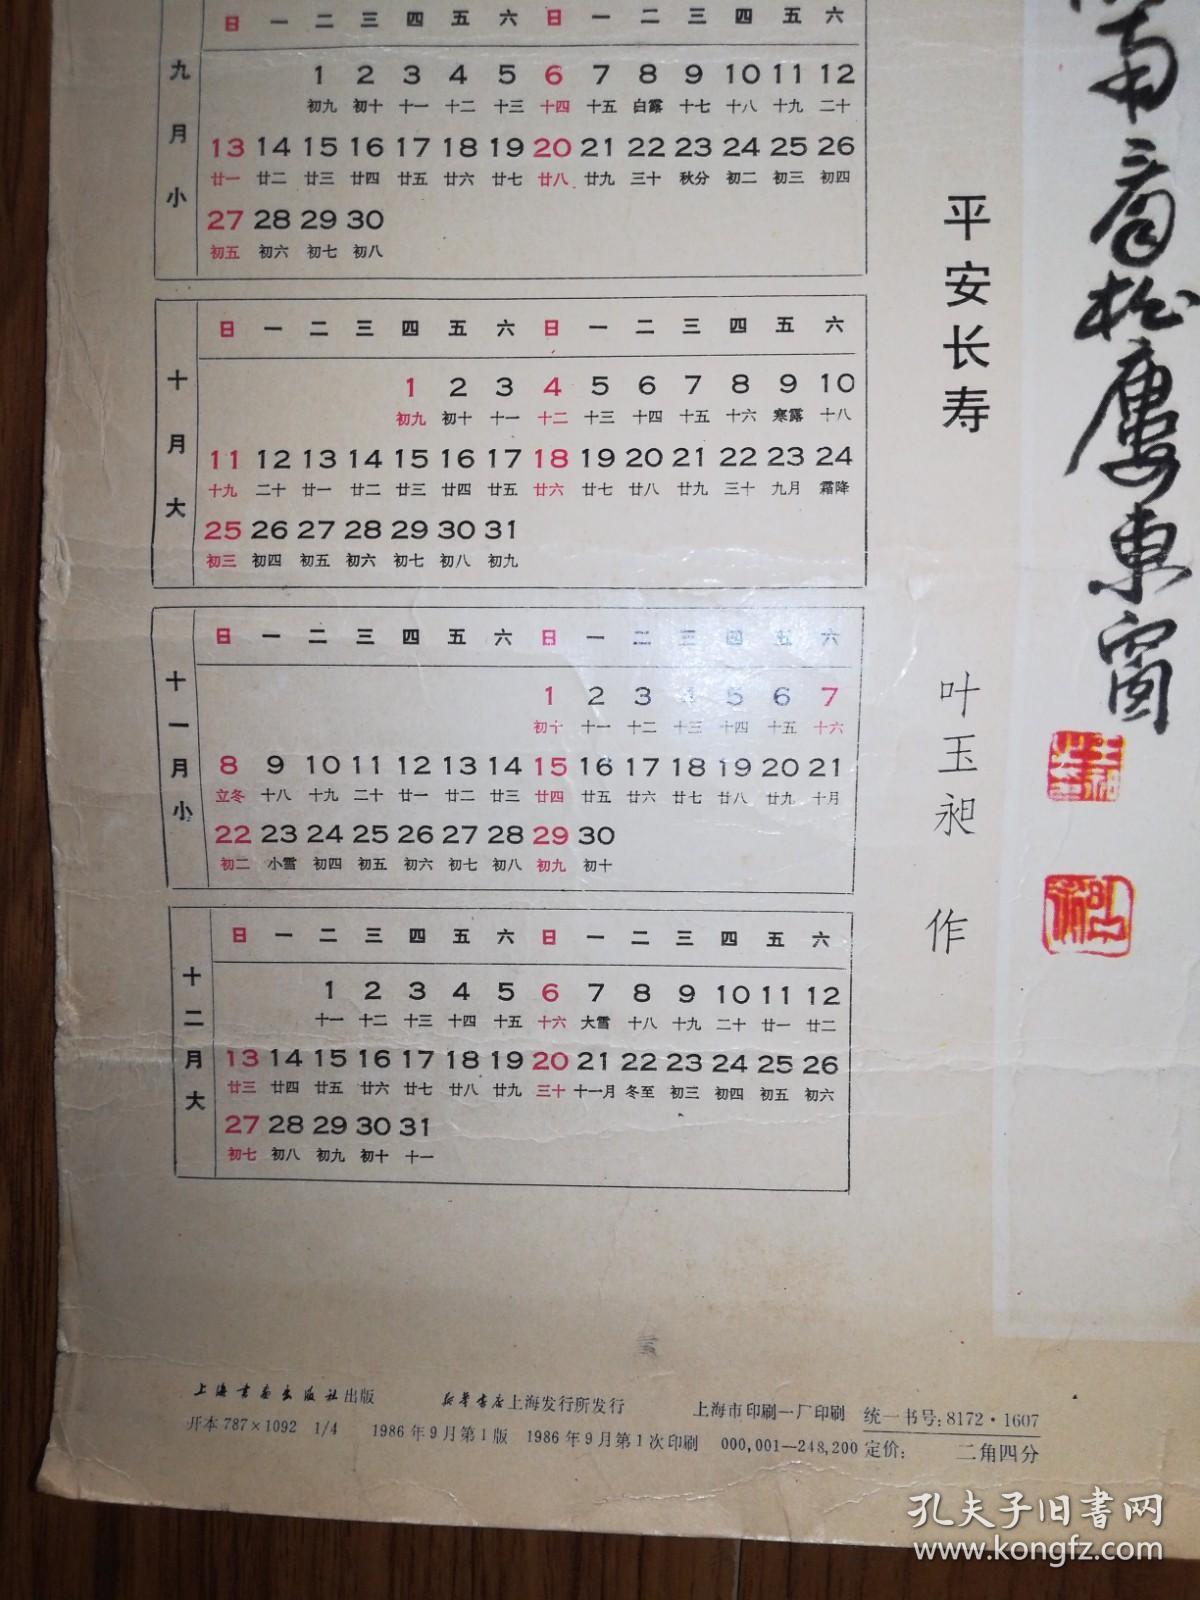 九月小
日 一 二 三 四 五 六 日 一 二 三 四 五 六
1 2 3 4 5 6 7 8 9 10 11 12
初九 初十 十一 十二 十三 十四 十五 白露 十七 十八 十九 二十
13 14 15 16 17 18 19 20 21 22 23 24 25 26
廿一 廿二 廿三 廿四 廿五 廿六 廿七 廿八 廿九 三十 秋分 初二 初三 初四
27 28 29 30
初五 初六 初七 初八
十月大
日 一 二 三 四 五 六 日 一 二 三 四 五 六
1 2 3 4 5 6 7 8 9 10
初九 初十 十一 十二 十三 十四 十五 十六 寒露 十八
11 12 13 14 15 16 17 18 19 20 21 22 23 24
十九 二十 廿一 廿二 廿三 廿四 廿五 廿六 廿七 廿八 廿九 三十 九月 霜降
25 26 27 28 29 30 31
初三 初四 初五 初六 初七 初八 初九
十一月小
日 一 二 三 四 五 六 日 一 二 三 四 五 六
1 2 3 4 5 6 7
初十 十一 十二 十三 十四 十五 十六
8 9 10 11 12 13 14 15 16 17 18 19 20 21
立冬 十八 十九 二十 廿一 廿二 廿三 廿四 廿五 廿六 廿七 廿八 廿九 十月
22 23 24 25 26 27 28 29 30
初二 小雪 初四 初五 初六 初七 初八 初九 初十
十二月大
日 一 二 三 四 五 六 日 一 二 三 四 五 六
1 2 3 4 5 6 7 8 9 10 11 12
十一 十二 十三 十四 十五 十六 大雪 十八 十九 二十 廿一 廿二
13 14 15 16 17 18 19 20 21 22 23 24 25 26
廿三 廿四 廿五 廿六 廿七 廿八 廿九 三十 十一月 冬至 初三 初四 初五 初六
27 28 29 30 31
初七 初八 初九 初十 十一
平安长寿
叶玉昶 作
東窗
上海书画出版社出版 新华书店上海发行所发行 上海市印刷一厂印刷 统一书号:8172·1607
开本 787×1092 1/4 1986年9月第1版 1986年9月第1次印刷 000,001—248,200 定价: 二角四分
孔夫子旧书网
www.kongfz.com